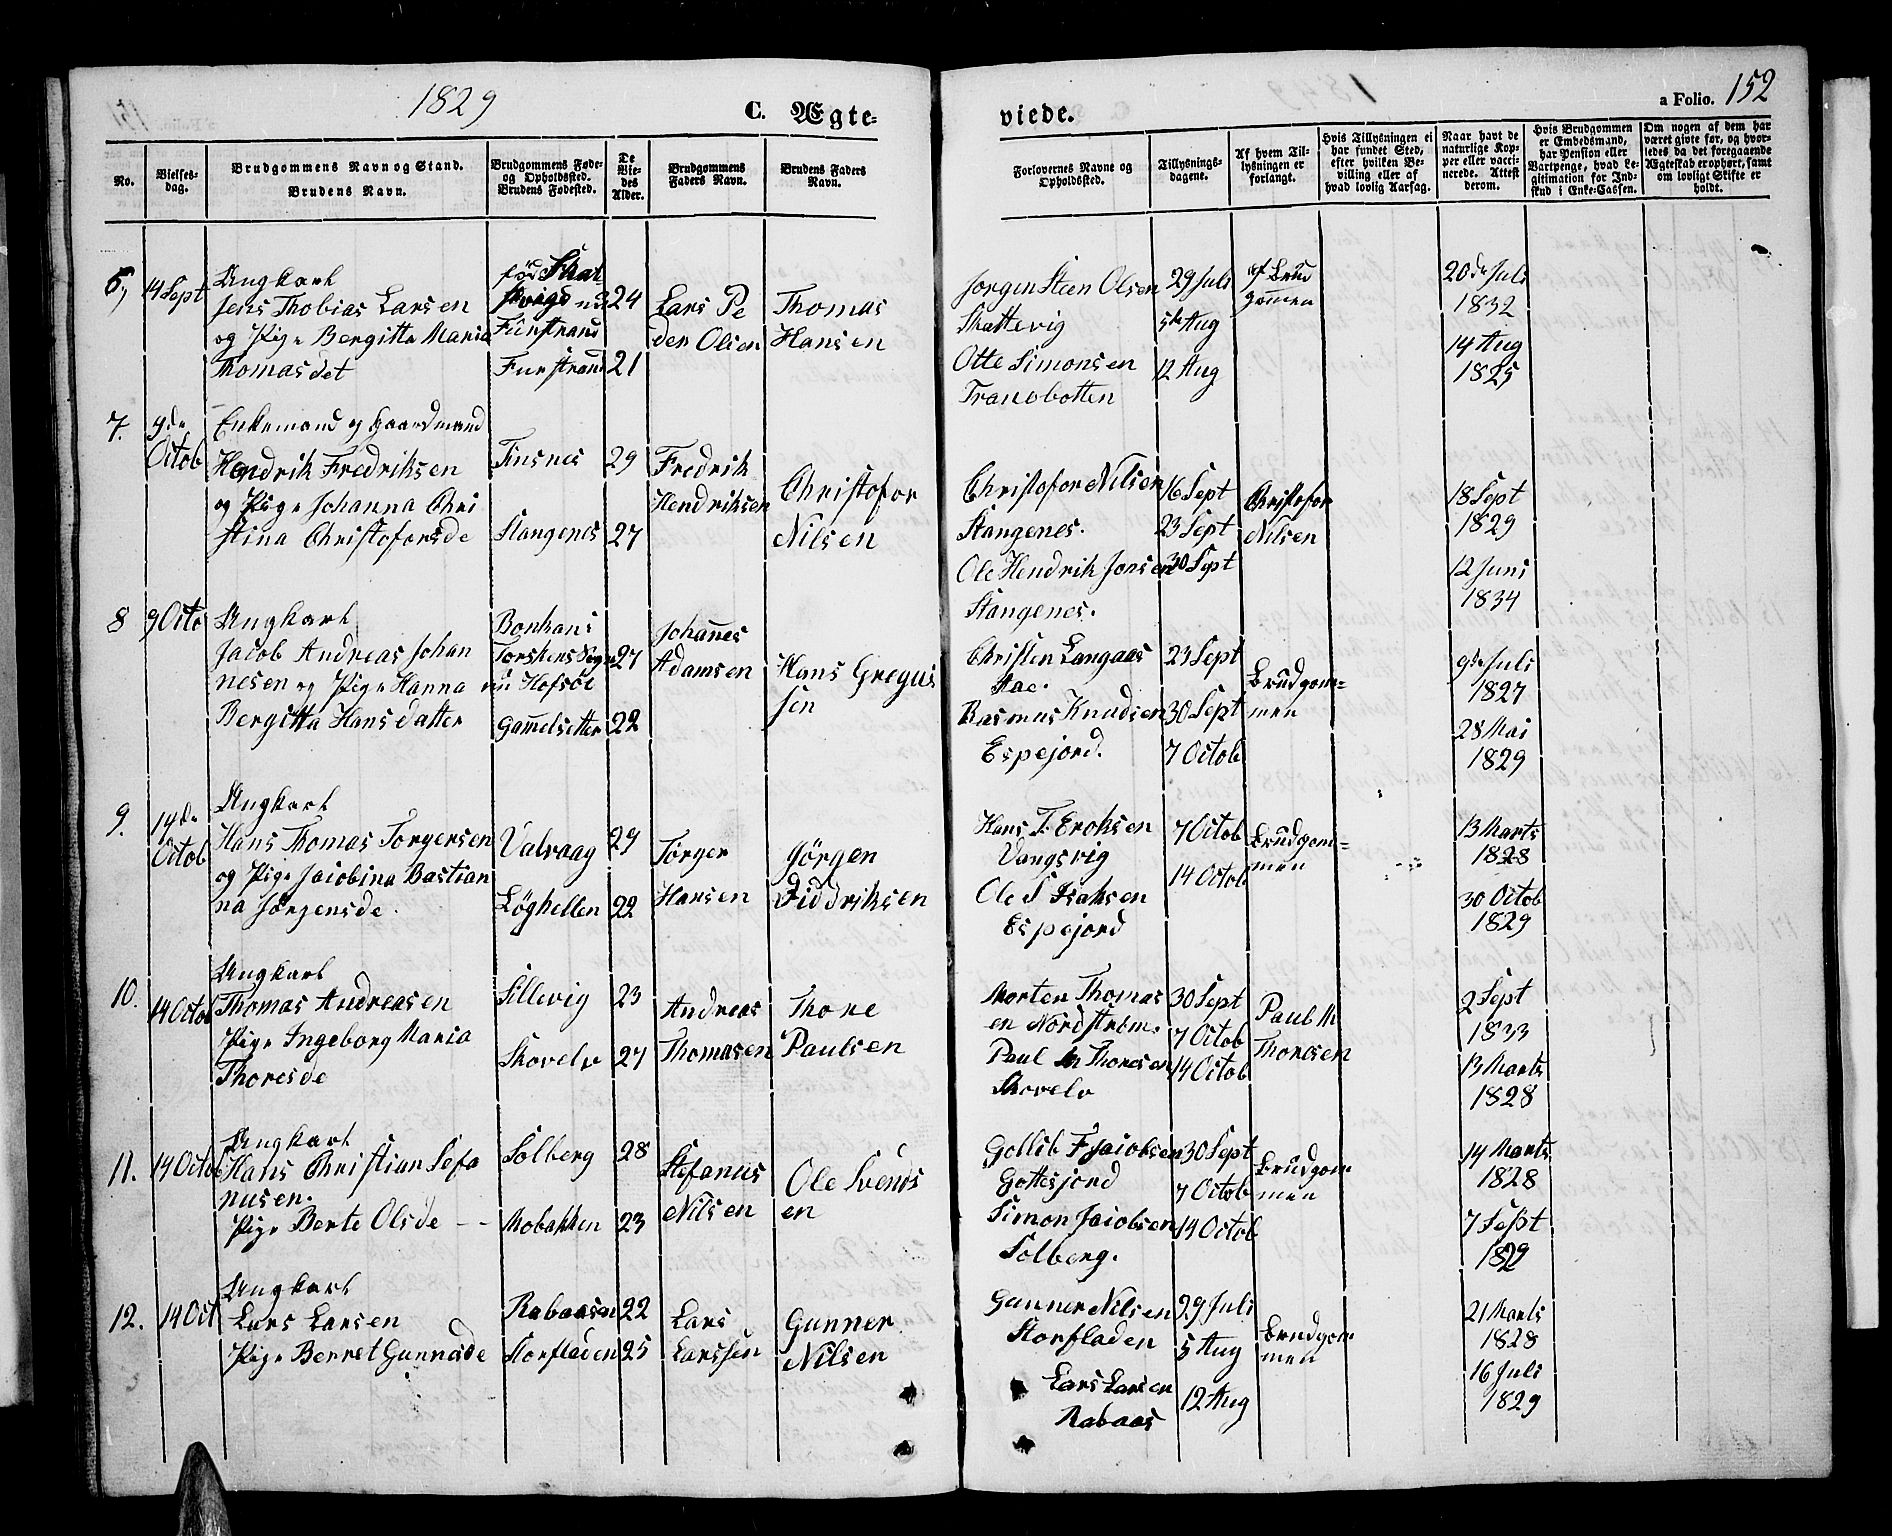 1829
C. Ægte-
viede.
a Folio. 152
No.
Vielses-
dag.
Brudgommens Navn og Stand.
Brudens Navn.
Brudgommens Føde-
og Opholdssted.
Brudens Fødested.
De
Vie-
des
Alder.
Brudgommens
Faders Navn.
Brudens Faders
Navn.
Forlovernes Navne og
Opholdssted.
Tillysnings-
dagene.
Af hvem Til-
lysningen er
forlangt.
Hvis Tillysningen ei
har fundet Sted,
efter hvilken Be-
villing eller af
hvad lovlig Aarsag.
Naar havt de
naturlige Kop-
per eller vacci-
nerede. Attest
derom.
Hvis Brudgommen
er Embedsmand,
har Pension eller
Vartpenge, hvad Le-
gitimation for Ind-
skud i Enke-Cassen.
Om nogen af dem har
været givte før, og hvor-
ledes da det foregaaende
Ægteskab erophørt, samt
om lovligt Skifte er
holdt.
6,
14 Sept
Ungkarl
Jens Thobias Larsen
og Pige Bergitta Maria
Thomasdet
Finstrand
24
21
Lars Pe
der Olsen
Thomas
Hansen
Jørgen Steen Olsen
Skattevig
Otte Simonsen
Tranobotten
29 Juli
5te Aug
12 Aug
af Brud
gommen
20de Juli
1832
14 Aug
1825
7.
9de
Octob
Enkemand og Gaardmand
Hendrik Fredriksen
og Pige Johanna Chri
stina Christofersde
Finsnes
Stangenes
29
27
Fredrik
Hendriksen
Christofor
Nilsen
Christofor Nilsen
Stangenes.
Ole Hendrik Jonsen
Stangenes.
16 Sept
23 Sept
30 Sept
Christofor
Nilsen
18 Sept
1829
12 Juni
1834
8
9 Octo
Ungkarl
Jacob Andreas Johan
nesen og Pige Hanna
Bergitta Hansdatter
Bonhans
Torskens Sogn
nu Hofsöe
Gammelsetter
27
22
Johannes
Adamsen
Hans Gregus
sen
Christen Langaas
Aae.
Rasmus Knudsen
Espejord.
23 Sept
30 Sept
7 Octob
Brudgom-
men
9de Juli
1827
28 Mai
1829
9.
14de
Octob
Ungkarl
Hans Thomas Torgersen
og Pige Jacobina Bastian
na Jørgensde.
Valvaag
Løghellen
29
22
Tørger
Hansen
Jørgen
Diddriksen
Hans T. Eroksen
Vangsvig
Ole S Isaksen
Espejord
7 Octob
14 Octob
Brudgom-
men
13 Marts
1828
30 Octob
1829
10.
14 Octob
Ungkarl
Thomas Andreasen
Pige Ingeborg Maria
Thoresde
Sillevig
Skovelv
23
27
Andreas
Thomasen
Thore
Paulsen
Morten Thomas
en Nordstrøm.
Paul M Thoresen
Skovelv
30 Sept
7 Octob
14 Octob
Paul M
Thoresen
2 Sept
1833
13 Marts
1828
11.
14 Octob
Ungkarl
Hans Christian Sefa
nusen.
Pige Berte Olsde - -
Solberg
Mobakken
28
23
Stefanus
Nilsen
Ole Svends
en
Gollib F Jacobsen
Gottesjord
Simon Jacobsen
Solberg.
30 Sept
7 Octob
14 Octob
Brudgom-
men
14 Marts
1828
7 Sept
1829
12.
14 Oct
Ungkarl
Lars Larsen
Pige Berret Gunnade
Rabaasen
Storfladen
22
25
Lars
Larssen
Gunner
Nilsen
Gunner Nilsen
Storfladen
Lars Larsen
Rabaas
29 Juli
5 Aug
12 Aug
Brudgom-
men
21 Marts
1828
16 Juli
1829